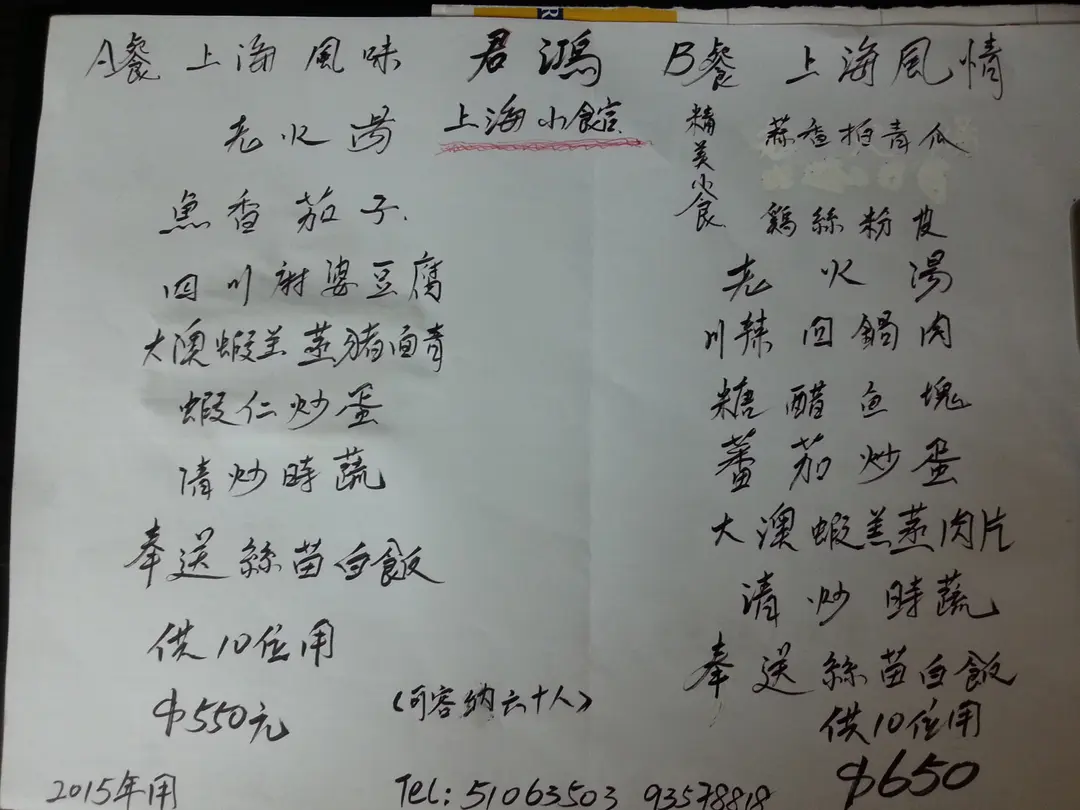 A餐 上海風味
老火湯
魚香茄子
四川麻婆豆腐
大澳蝦羔蒸豬面青
蝦仁炒蛋
清炒時蔬
奉送絲苗白飯
供10位用
$550元
2015年用
君鴻
上海小館
(可容納六十人)
Tel: 51063503 93578818
B餐 上海風情
精美小食
蒜香拍青瓜
鷄絲粉皮
老火湯
川辣回鍋肉
糖醋魚塊
蕃茄炒蛋
大澳蝦羔蒸肉片
清炒時蔬
奉送絲苗白飯
供10位用
$650